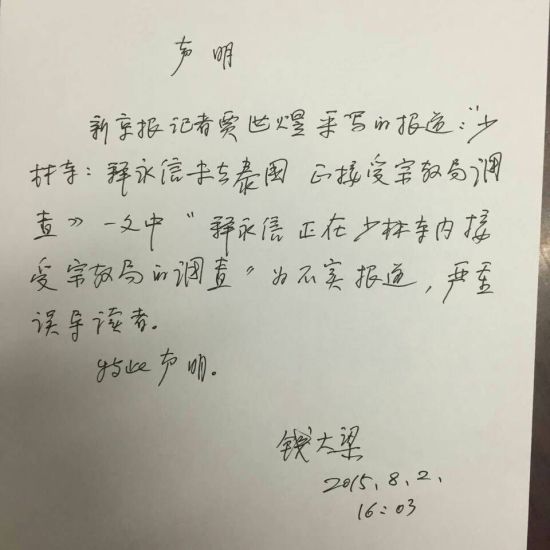 声明
新京报记者贾世煜采写的报道:“少
林寺:释永信未去泰国 正接受宗教局调
查》一文中“释永信正在少林寺内接
受宗教局的调查”为不实报道,严重
误导读者。
特此声明。
钱大梁
2015.8.2.
16:03